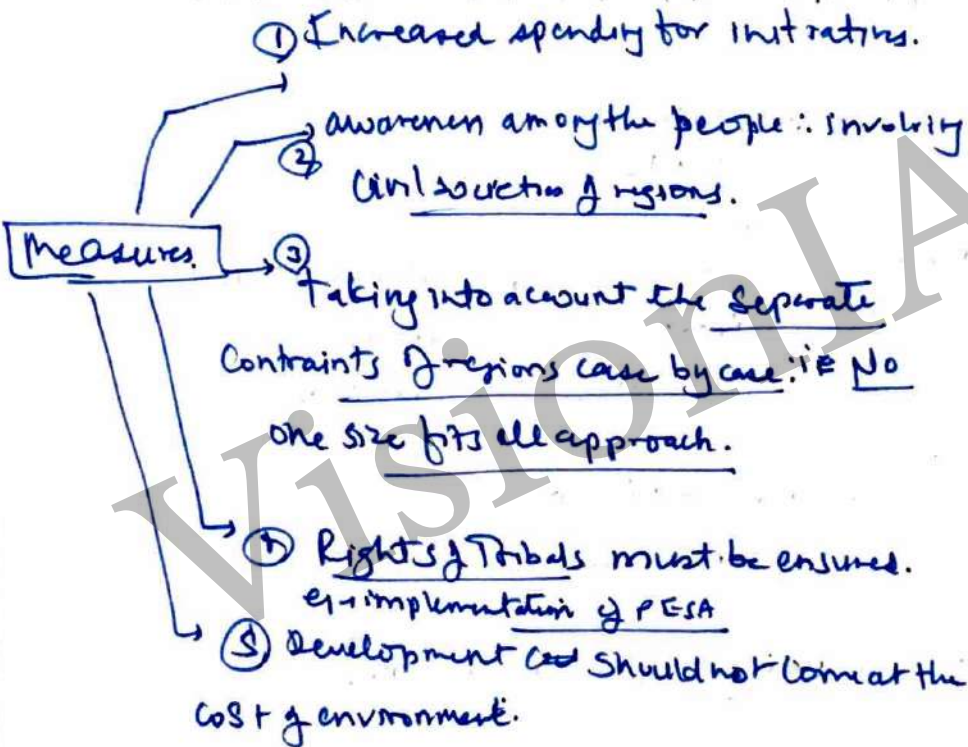 ① Increased spending for initiatives.
② awareness among the people : involving
civil societies of regions.
Measures.
③ Taking into account the separate
contraints of regions case by case : ie No
one size fits all approach.
④ Rights of Tribals must be ensured.
eg → implementation of PESA
⑤ Development should not come at the
cost of environment.
VisionIA